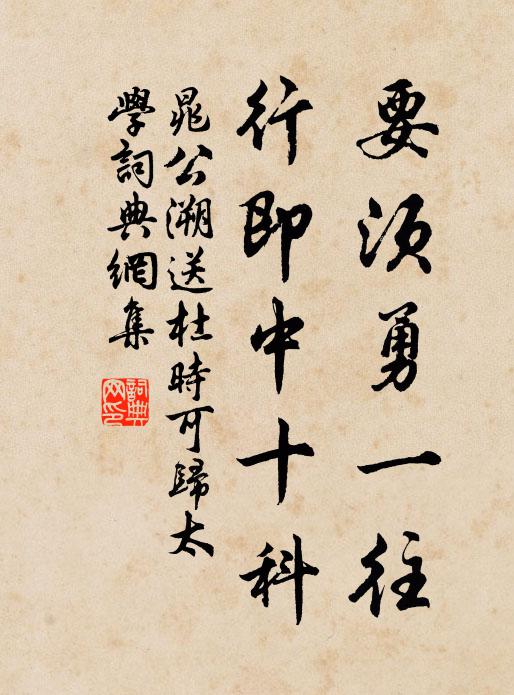 要須勇一往
行即中十科
晁公溯送杜時可歸太
學詞典網集
詞典
网印